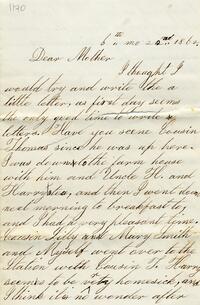 1170
6th mo 22nd 186
Dear Mother
I thought I
would try and write thee a
little letter, as first day seems
the only good time to write
letters. Have you seene Cousin
Thomas since he was up here.
I was down to the farm house
with him and Uncle H. and
Harry, and then I went down
next morning to breakfast to,
and I had a very pleasant time.
Cousin Lilly and Mary Smith
and Myself went over to the
Station with Cousin T. Harry
seems to be very homesick, and
I think its no wonder after